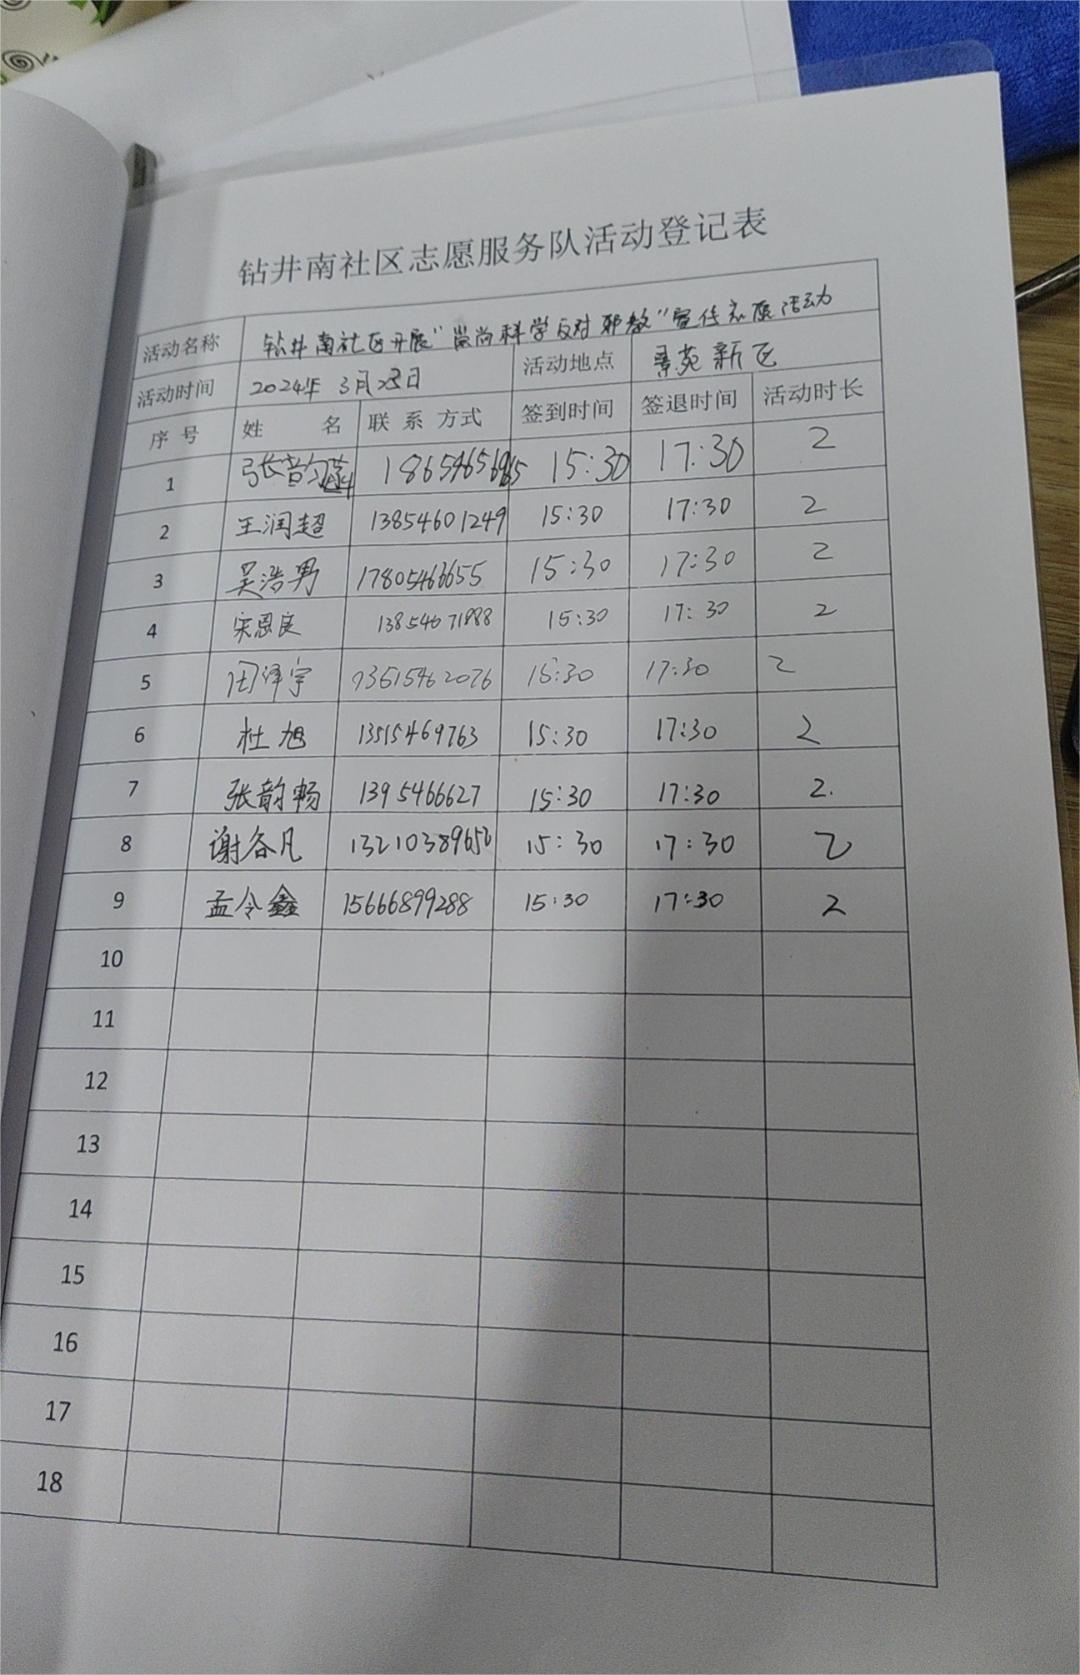 钻井南社区志愿服务队活动登记表
活动名称 钻井南社区开展"崇尚科学反对邪教"宣传志愿活动
活动时间 2024年 3月23日 活动地点 景苑新区
序号 姓 名 联系方式 签到时间 签退时间 活动时长
1 张韵涵 15:30 17:30 2
2 王润超 13854601249 15:30 17:30 2
3 吴浩男 15:30 17:30 2
4 宋恩良 15:30 17:30 2
5 田泽宇 15:30 17:30 2
6 杜旭 13515469763 15:30 17:30 2
7 张韵畅 1395466627 15:30 17:30 2.
8 15:30 17:30 2
9 孟令鑫 15666899288 15:30 17:30 2
10
11
12
13
14
15
16
17
18